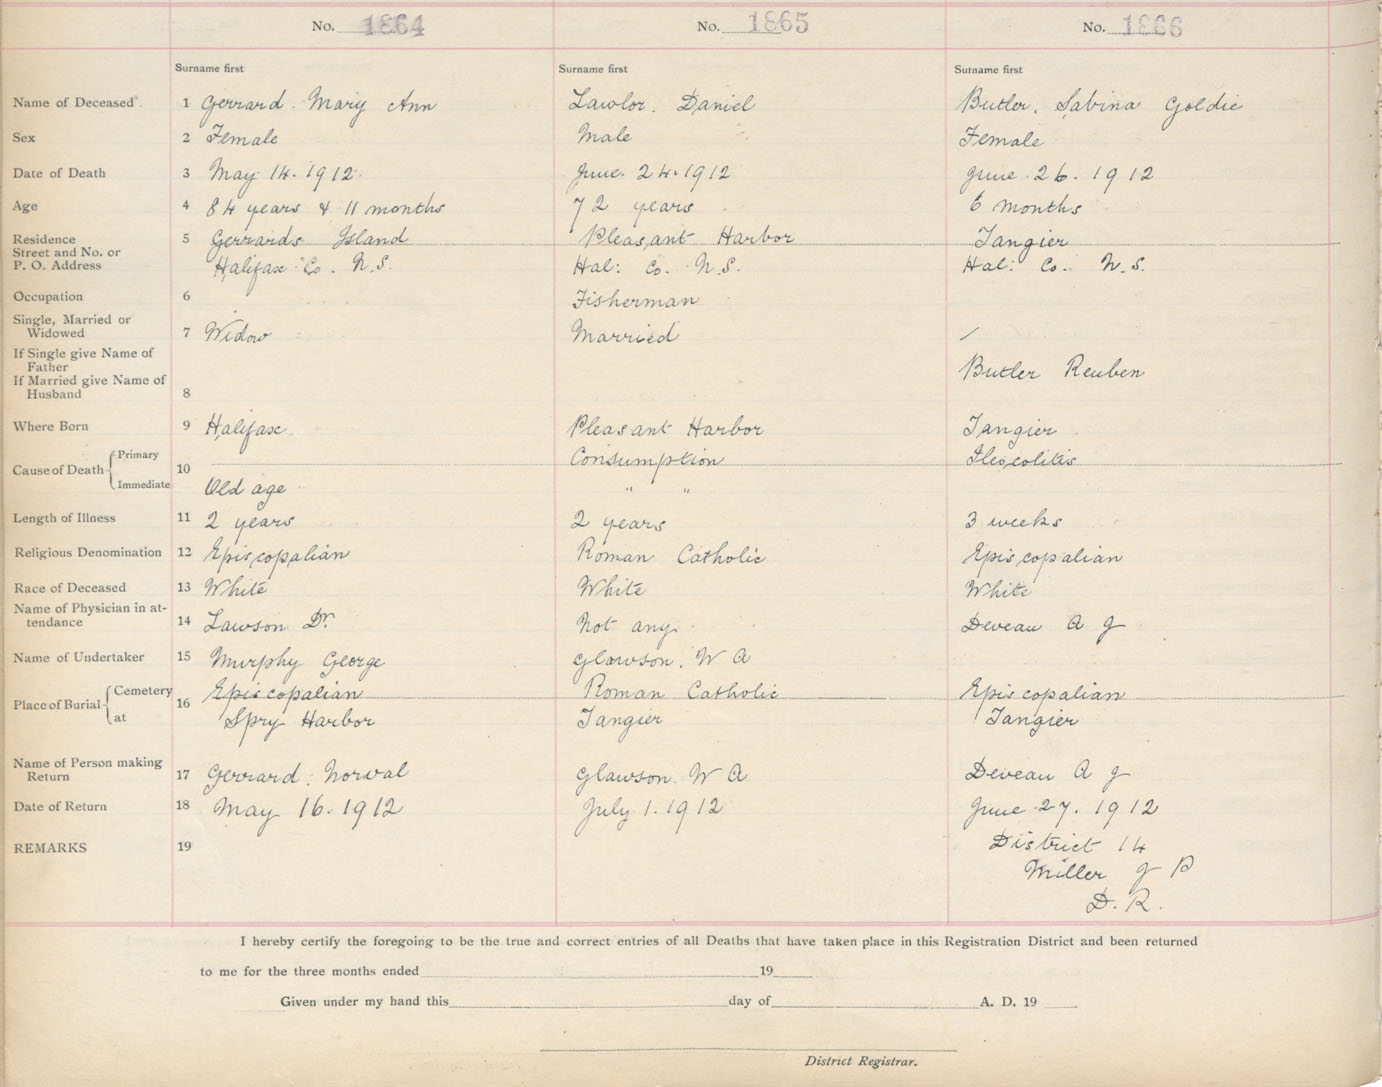 No. 1864 No. 1865 No. 1866
Surname first Surname first Surname first
Name of Deceased 1 Gerrard. Mary Ann Lawlor. Daniel Butler. Sabina Goldie
Sex 2 Female Male Female
Date of Death 3 May 14. 1912. June. 24. 1912 June. 26. 1912
Age 4 84 years & 11 months 72 years 6 months
Residence 5 Gerrards Island Pleasant Harbor Tangier
Street and No. or
P. O. Address Halifax Co. N.S. Hal: Co. N.S. Hal: Co. N.S.
Occupation 6 Fisherman
Single, Married or
Widowed 7 Widow Married /
If Single give Name of
Father Butler Reuben
If Married give Name of
Husband 8
Where Born 9 Halifax Pleasant Harbor Tangier
Cause of Death { Primary 10 Consumption Ileocolitis
Immediate Old age " "
Length of Illness 11 2 years 2 years 3 weeks
Religious Denomination 12 Episcopalian Roman Catholic Episcopalian
Race of Deceased 13 White White White
Name of Physician in at-
tendance 14 Lawson Dr. Not any. Deveau A J
Name of Undertaker 15 Murphy George Glawson. W A
Place of Burial { Cemetery 16 Episcopalian Roman Catholic Episcopalian
at Spry Harbor Tangier Tangier
Name of Person making
Return 17 Gerrard. Norval Glawson. W A Deveau A J
Date of Return 18 May 16. 1912 July 1. 1912 June 27. 1912
REMARKS 19 District 14
Miller J B
D. R.
I hereby certify the foregoing to be the true and correct entries of all Deaths that have taken place in this Registration District and been returned
to me for the three months ended 19
Given under my hand this day of A. D. 19
District Registrar.